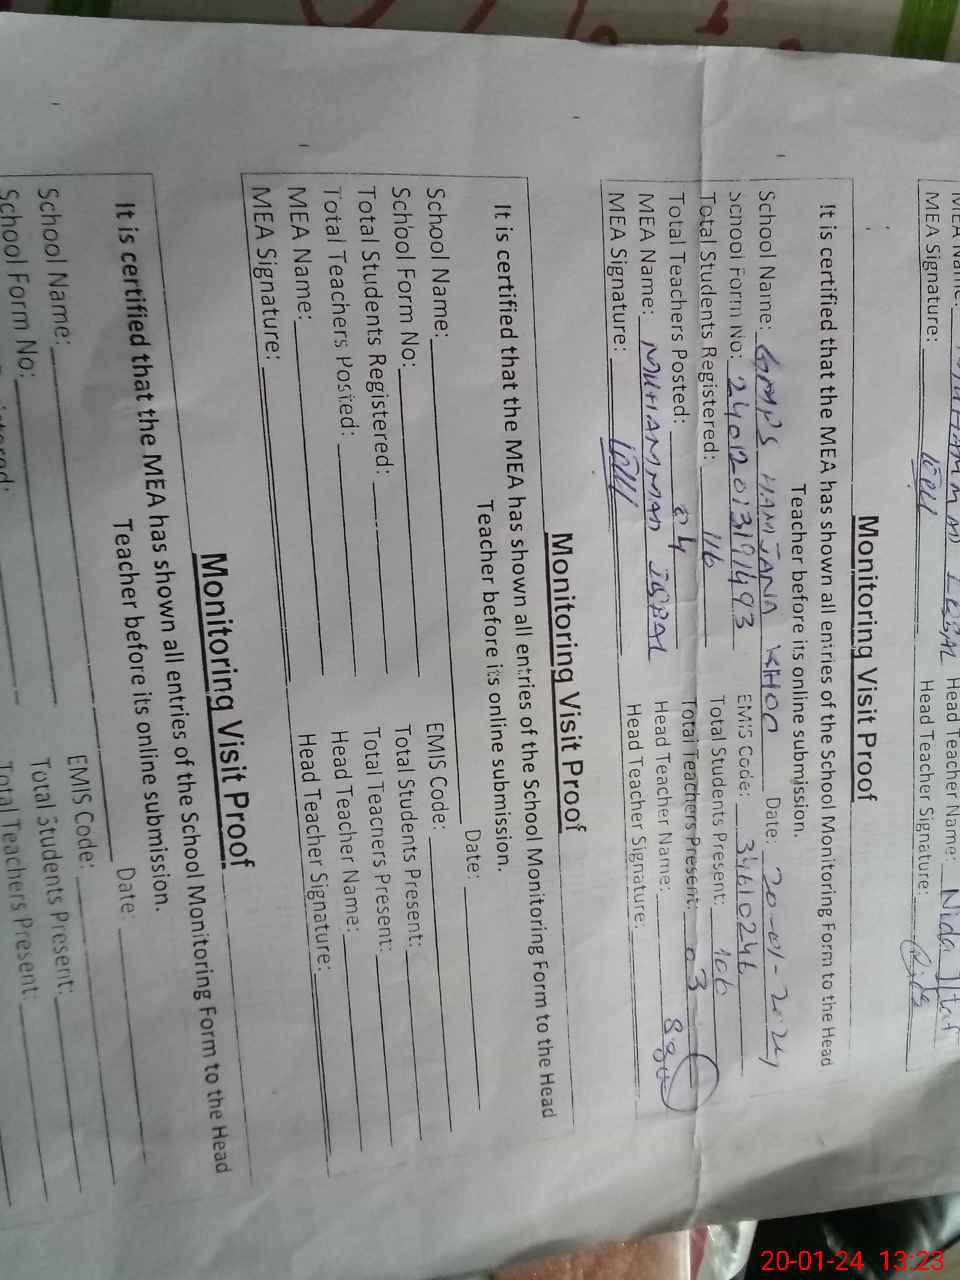 MEA Name: MUHAMMAD IQBAL Head Teacher Name: Nida
MEA Signature: Head Teacher Signature:
Monitoring Visit Proof
It is certified that the MEA has shown all entries of the School Monitoring Form to the Head
Teacher before its online submission.
School Name: GMPS HAMJANA KHOO Date: 20-01-2024
School Form No: EMIS Code: 34610246
Total Students Registered: 116 Total Students Present: 106
Total Teachers Posted: 04 Total Teachers Present: 03
MEA Name: MUHAMMAD IQBAL Head Teacher Name:
MEA Signature: Head Teacher Signature:
Monitoring Visit Proof
It is certified that the MEA has shown all entries of the School Monitoring Form to the Head
Teacher before its online submission.
School Name: Date:
School Form No: EMIS Code:
Total Students Registered: Total Students Present:
Total Teachers Posted: Total Teachers Present:
MEA Name: Head Teacher Name:
MEA Signature: Head Teacher Signature:
Monitoring Visit Proof
It is certified that the MEA has shown all entries of the School Monitoring Form to the Head
Teacher before its online submission.
School Name: Date:
School Form No: EMIS Code:
Total Students Present:
Total Teachers Present:
20-01-24 13:23